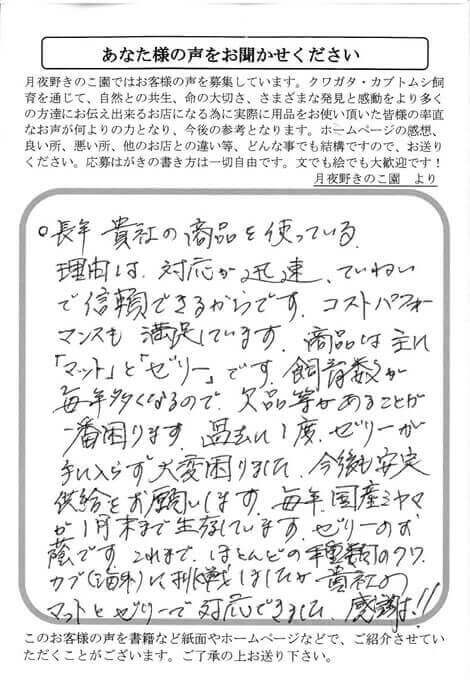 あなた様の声をお聞かせください
月夜野きのこ園ではお客様の声を募集しています。クワガタ・カブトムシ飼
育を通じて、自然との共生、命の大切さ、さまざまな発見と感動をより多く
の方達にお伝え出来るお店になる為に実際に用品をお使い頂いた皆様の率直
なお声が何よりの力となり、今後の参考となります。ホームページの感想、
良い所、悪い所、他のお店との違い等、どんな事でも結構ですので、お送り
ください。応募はがきの書き方は一切自由です。文でも絵でも大歓迎です！
月夜野きのこ園　より
○長年 貴社の商品を使っている
理由は、対応が迅速、ていねい
で信頼できるからです。コストパフォー
マンスも満足しています。商品は主に
「マット」と「ゼリー」です。飼育数が
毎年多くなるので、欠品等があることが
一番困ります。過去に1度、ゼリーが
手に入らず大変困りました。今後も安定
供給をお願いします。毎年、国産ミヤマ
が1月末まで生存しています。ゼリーのお
蔭です。これまで、ほとんどの種類のクワ、
カブ（海外）に挑戦しましたが貴社の
マットとゼリーで対応できました。感謝!!
このお客様の声を書籍など紙面やホームページなどで、ご紹介させてい
ただくことがございます。ご了承の上お送り下さい。